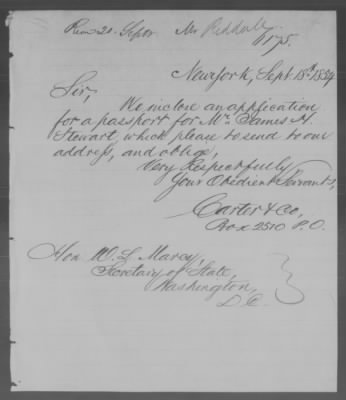 Recd 20. Septr. Mr Riddall
175.
New York, Sept 18th 1854
Sir,
We inclose an application
for a passport for Mr. James H.
Stewart, which please to send to our
address, and oblige,
Very Respectfully
Your Obedient Servants,
Carter & Co,
Box 2510 P.O.
Hon W. L Marcy,
Secretary of State,
Washington,
D.C.